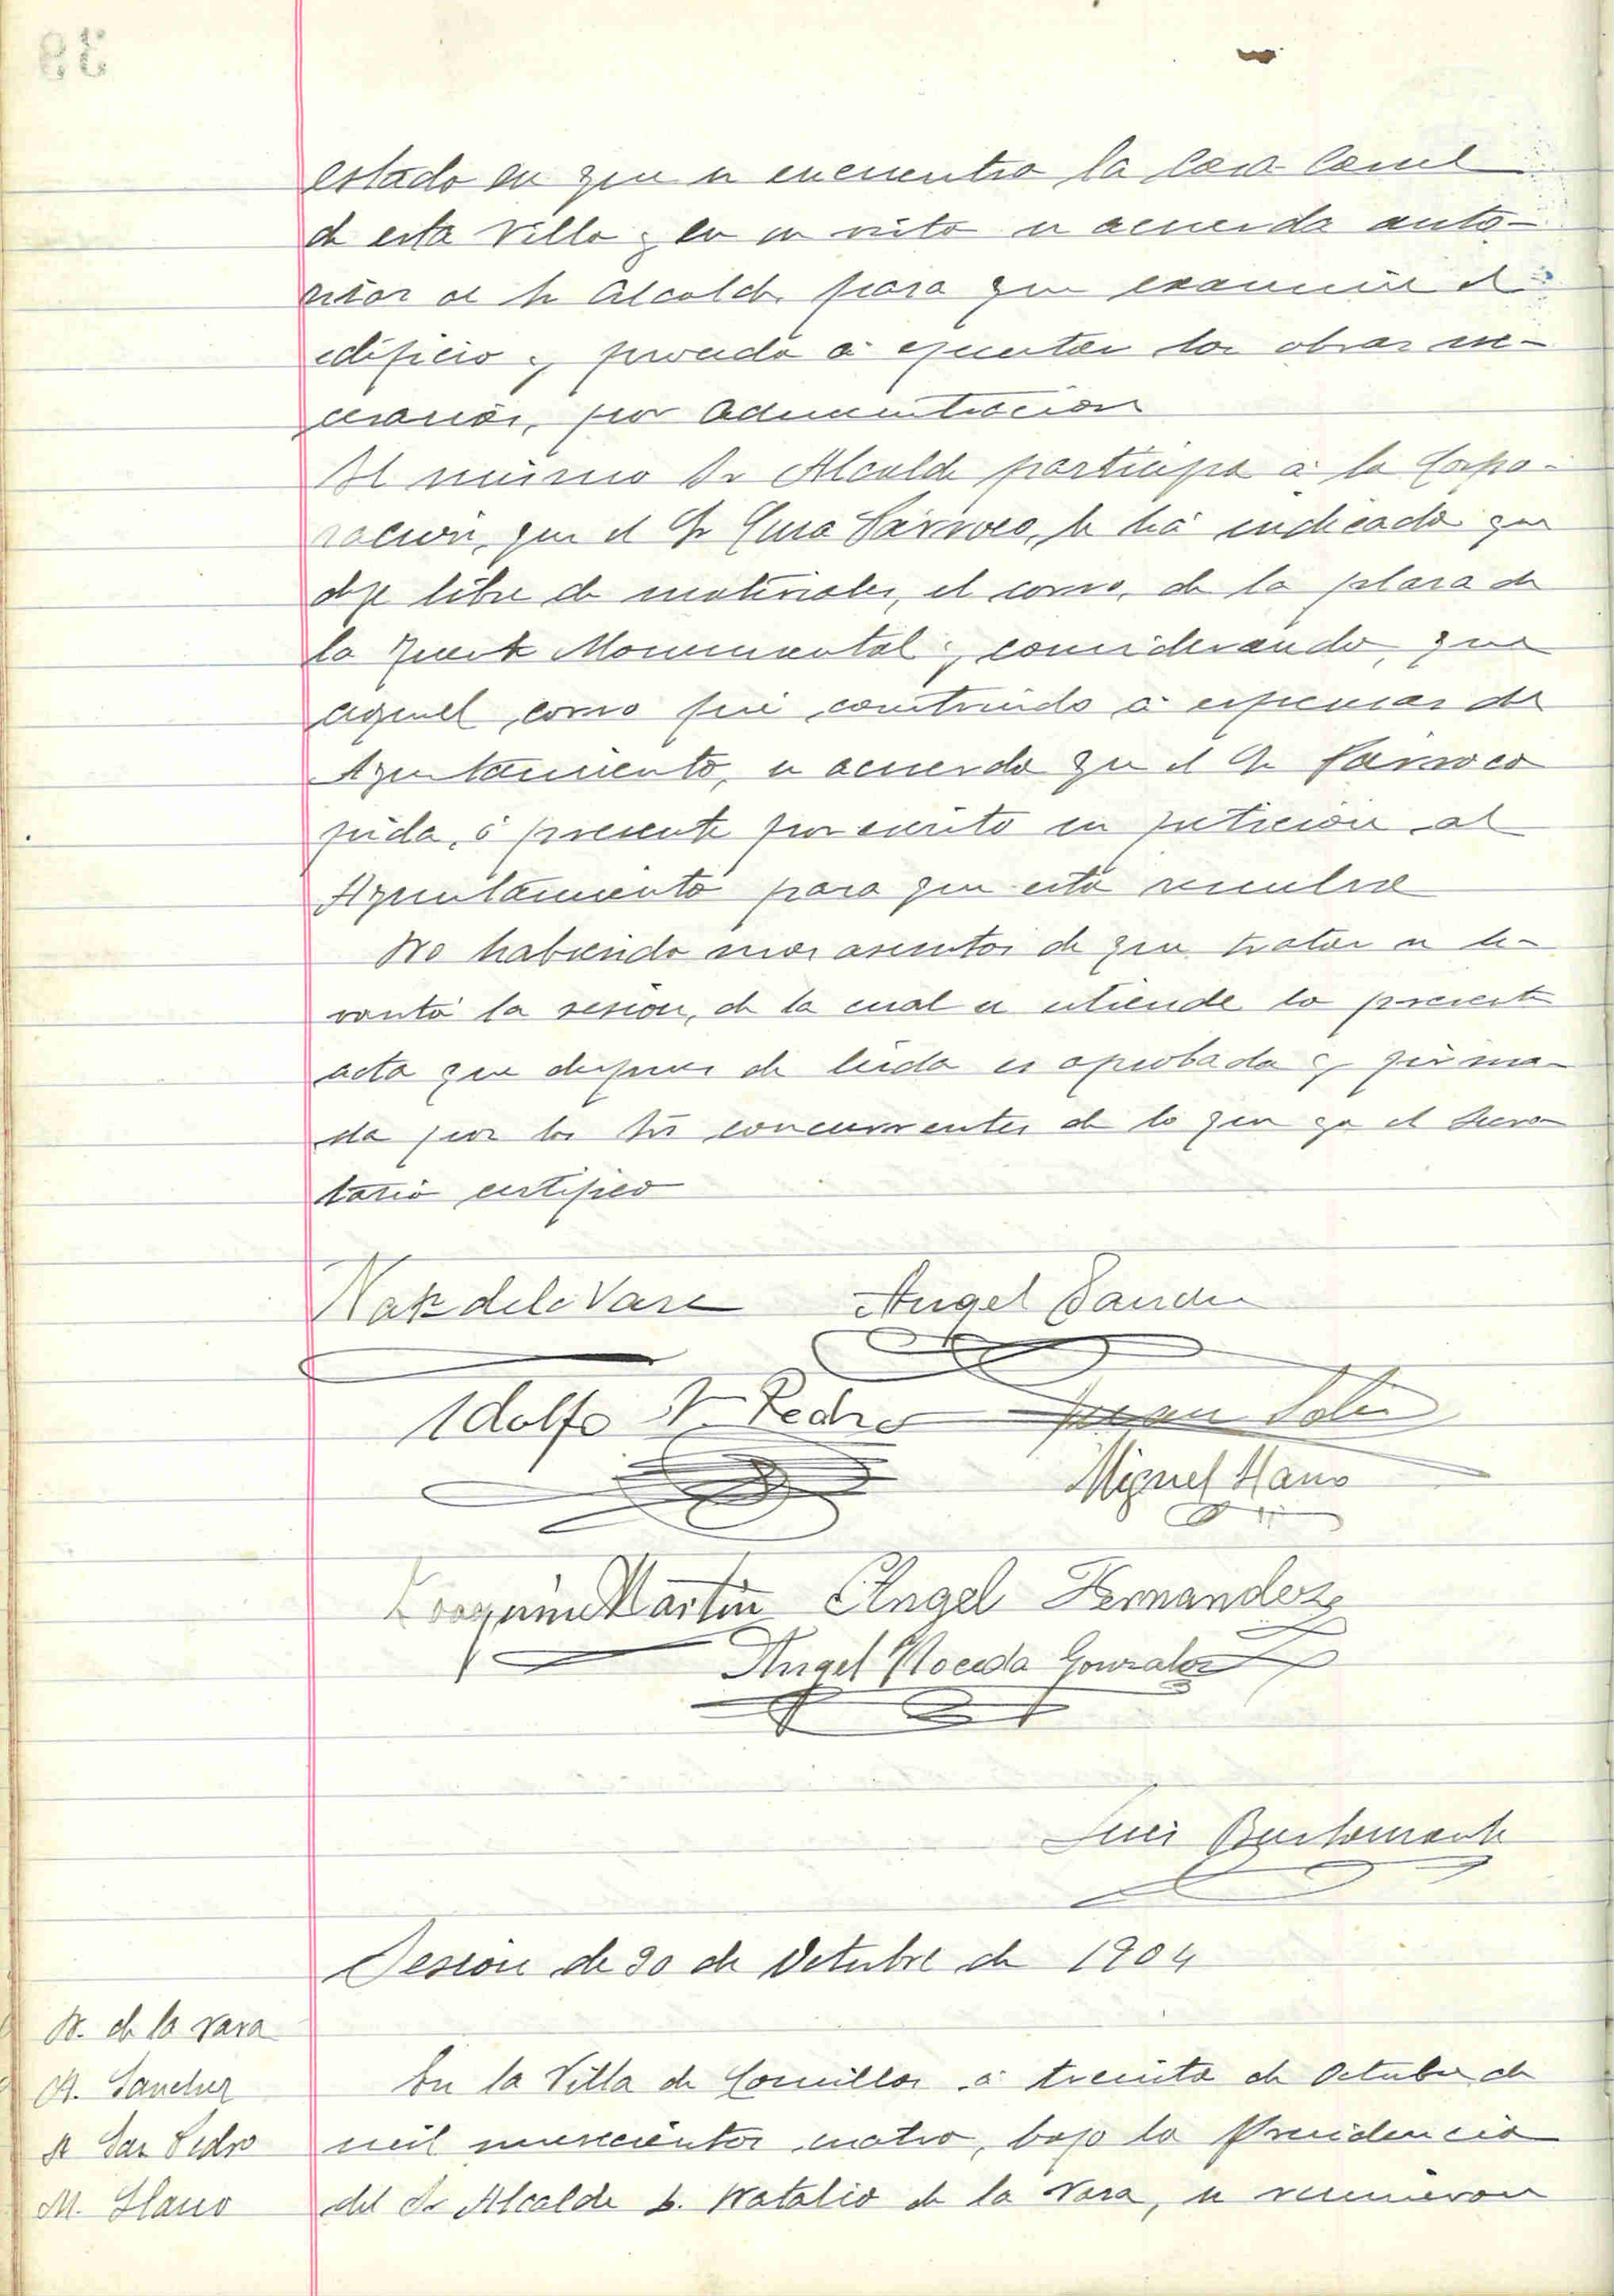 estado en que se encuentra la Casa Carcel
de esta Villa y en su vista se acuerda auto-
rizar al Sr Alcalde para que examine el
edificio y proceda á ejecutar las obras ne-
cesarias, por Administración
El mismo Sr Alcalde participa á la Corpo-
ración, que el Sr Cura Párroco, le há indicado que
deje libre de materiales, el corro, de la plaza de
la Fuente Monumental y considerando, que
aquel corro fué construido á espensas del
Ayuntamiento, se acuerda que el Sr Párroco
pida, ó presente por escrito su petición al
Ayuntamiento para que esta resuelva
No habiendo mas asuntos de que tratar se le-
vantó la sesión, de la cual se estiende la presente
acta que despues de leida es aprobada y firma-
da por los Srs concurrentes de lo que yo el Secre
tario certifico
Nat de la Vara Angel Sanchez
Adolfo S. Pedro Juan Solis
Miguel Llano
Joaquin Martin Angel Fernandez
Angel Noceda Gonzalez
Luis Bustamante
Sesión de 30 de Octubre de 1904
N. de la Vara
A. Sanchez
A San Pedro
M. Llano
En la Villa de Comillas á treinta de Octubre de
mil novecientos cuatro, bajo la Presidencia
del Sr Alcalde D. Natalio de la Vara, se reunieron